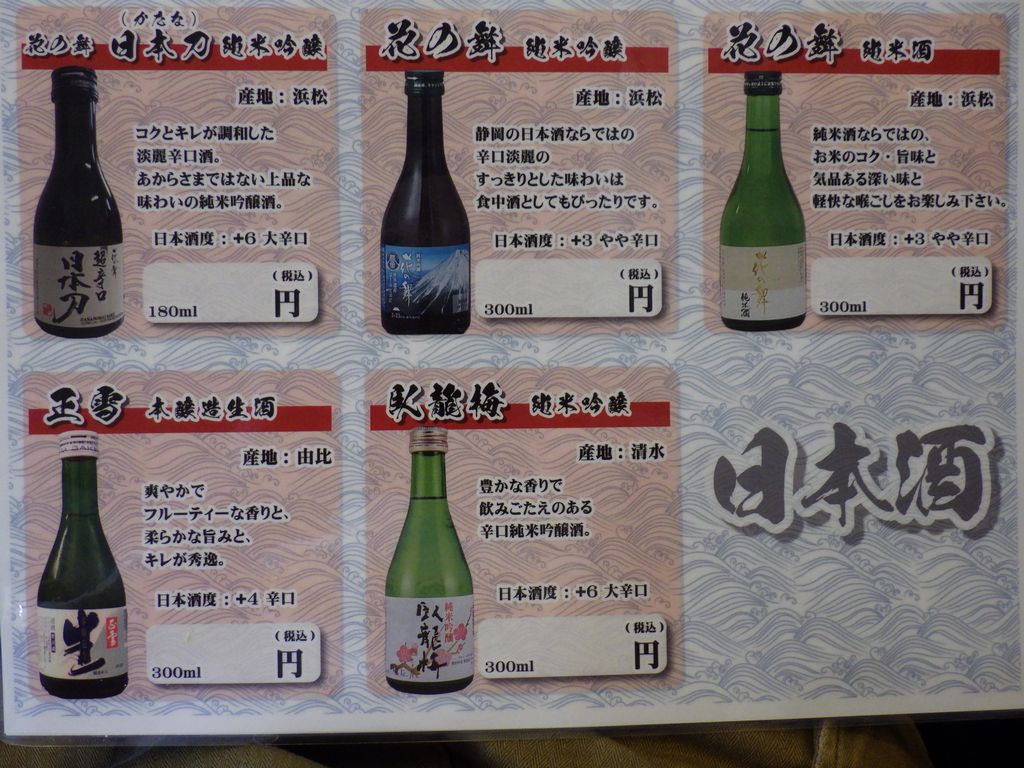 (かたな)
花の舞 日本刀 純米吟醸
産地：浜松
コクとキレが調和した
淡麗辛口酒。
あからさまではない上品な
味わいの純米吟醸酒。
日本酒度：+6 大辛口
(税込)
180ml 円
花の舞
超辛口
日本刀
花の舞 純米吟醸
産地：浜松
静岡の日本酒ならではの
辛口淡麗の
すっきりとした味わいは
食中酒としてもぴったりです。
日本酒度：+3 やや辛口
(税込)
300ml 円
花の舞
花の舞 純米酒
産地：浜松
純米酒ならではの、
お米のコク・旨味と
気品ある深い味と
軽快な喉ごしをお楽しみ下さい。
日本酒度：+3 やや辛口
(税込)
300ml 円
花の舞
純米酒
正雪 本醸造生酒
産地：由比
爽やかで
フルーティーな香りと、
柔らかな旨みと、
キレが秀逸。
日本酒度：+4 辛口
(税込)
300ml 円
正雪
生
臥龍梅 純米吟醸
産地：清水
豊かな香りで
飲みごたえのある
辛口純米吟醸酒。
日本酒度：+6 大辛口
(税込)
300ml 円
純米吟醸
臥龍梅
日本酒